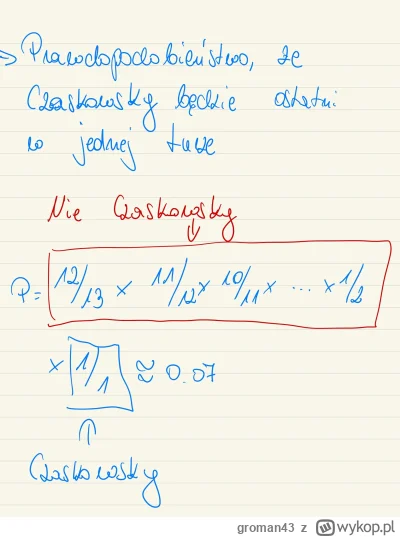 → Prawdopodobieństwo, że
Czaskowsky będzie ostatni
w jednej turze
Nie Czaskowsky
↓
P = 12/13 × 11/12 × 10/11 × ... × 1/2
× 1/1 ≈ 0.07
↑
Czaskowsky
groman43 z wykop.pl